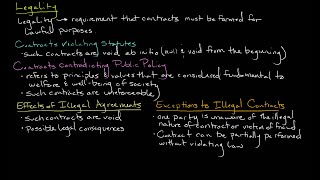 Legality
Legality → requirement that contracts must be formed for
lawful purposes.
Contracts Violating Statutes
• Such contracts are void ab initio (null & void from the beginning)
Contracts Contradicting Public Policy
• refers to principles & values that are considered fundamental to
welfare & well-being of society
• Such contracts are unenforceable
Effects of Illegal Agreements
• Such contracts are void
• Possible legal consequences
Exceptions to Illegal Contracts
• One party is unaware of the illegal
nature of contract or victim of fraud
• Contract can be partially performed
without violating law